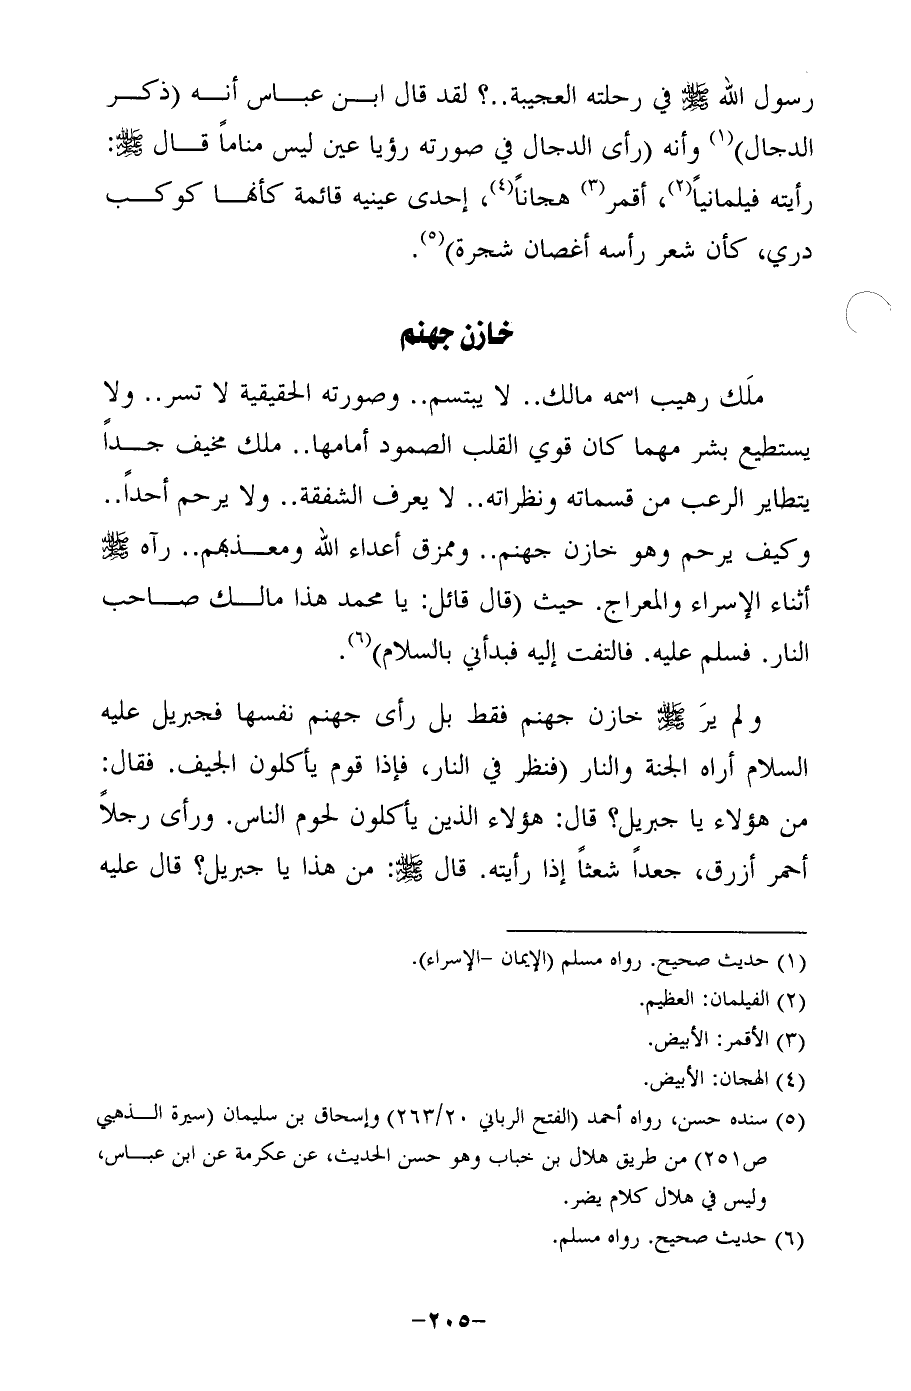 رسول الله ﷺ في رحلته العجيبة..؟ لقد قال ابن عباس أنه (ذكر
الدجال)(١) وأنه (رأى الدجال في صورته رؤيا عين ليس مناماً قال ﷺ:
رأيته فيلمانياً(٢)، أقمر(٣) هجاناً(٤)، إحدى عينيه قائمة كأنها كوكب
دري، كأن شعر رأسه أغصان شجرة)(٥).
خازن جهنم
ملَك رهيب اسمه مالك.. لا يبتسم.. وصورته الحقيقية لا تسر.. ولا
يستطيع بشر مهما كان قوي القلب الصمود أمامها.. ملك مخيف جداً
يتطاير الرعب من قسماته ونظراته.. لا يعرف الشفقة.. ولا يرحم أحداً..
وكيف يرحم وهو خازن جهنم.. وممزق أعداء الله ومعذبهم.. رآه ﷺ
أثناء الإسراء والمعراج. حيث (قال قائل: يا محمد هذا مالك صاحب
النار. فسلم عليه. فالتفت إليه فبدأني بالسلام)(٦).
ولم يرَ ﷺ خازن جهنم فقط بل رأى جهنم نفسها فجبريل عليه
السلام أراه الجنة والنار (فنظر في النار، فإذا قوم يأكلون الجيف. فقال:
من هؤلاء يا جبريل؟ قال: هؤلاء الذين يأكلون لحوم الناس. ورأى رجلاً
أحمر أزرق، جعداً شعثاً إذا رأيته. قال ﷺ: من هذا يا جبريل؟ قال عليه
(١) حديث صحيح. رواه مسلم (الإيمان -الإسراء).
(٢) الفيلمان: العظيم.
(٣) الأقمر: الأبيض.
(٤) الهجان: الأبيض.
(٥) سنده حسن، رواه أحمد (الفتح الرباني ٢٦٣/٢٠) وإسحاق بن سليمان (سيرة الذهبي
ص٢٥١) من طريق هلال بن خباب وهو حسن الحديث، عن عكرمة عن ابن عباس،
وليس في هلال كلام يضر.
(٦) حديث صحيح. رواه مسلم.
-٢٠٥-